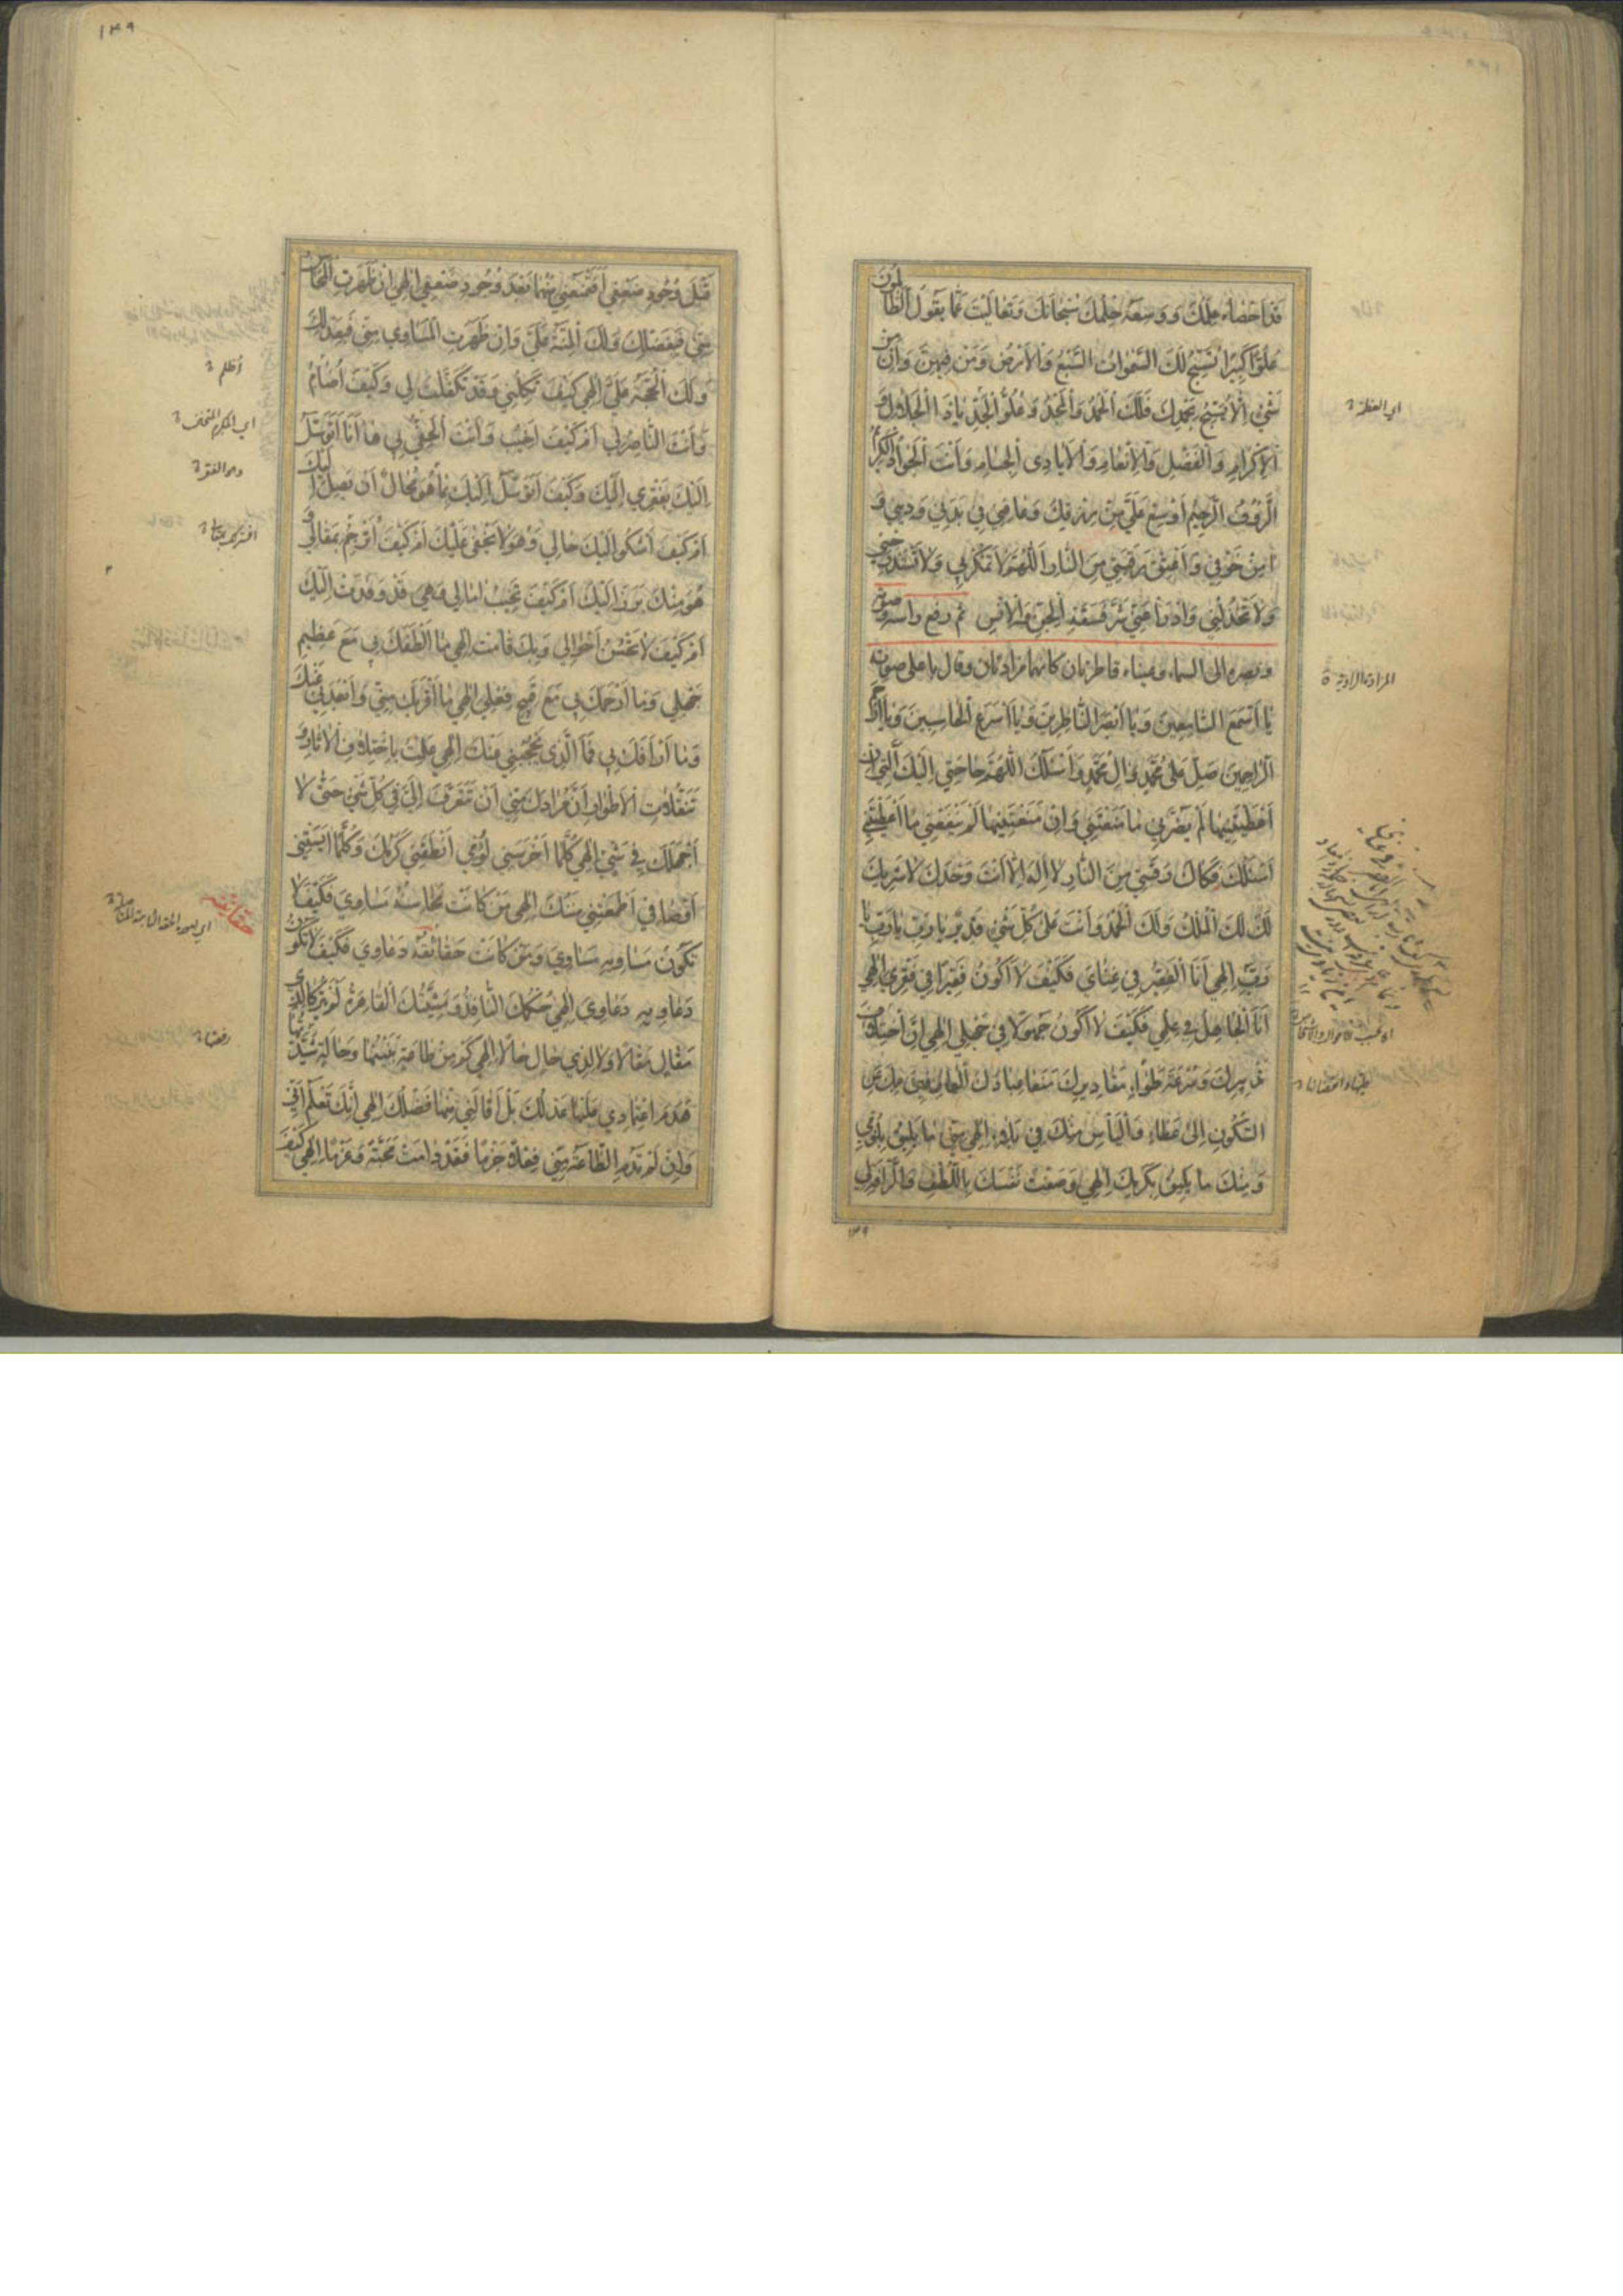 قَدْ اَحْصَاهُ عِلْمُكَ وَوَسِعَهُ حِلْمُكَ سُبْحَانَكَ وَتَعَالَيْتَ عَمَّا يَقُولُ الظَّالِمُونَ
عُلُوًّا كَبِيرًا تُسَبِّحُ لَكَ السَّمٰوَاتُ السَّبْعُ وَالْاَرْضُ وَمَنْ فِيهِنَّ وَاِنْ مِنْ
شَيْءٍ اِلَّا يُسَبِّحُ بِحَمْدِكَ فَلَكَ الْحَمْدُ وَالْمَجْدُ وَعُلُوُّ الْجَدِّ يَاذَا الْجَلَالِ وَ
الْاِكْرَامِ وَالْفَضْلِ وَالْاِنْعَامِ وَالْاَيَادِي الْجِسَامِ وَاَنْتَ الْجَوَادُ الْكَرِيمُ
الرَّؤُفُ الرَّحِيمُ اَوْسِعْ عَلَيَّ مِنْ رِزْقِكَ وَعَافِنِي فِي بَدَنِي وَدِينِي وَ
اٰمِنْ خَوْفِي وَاَعْتِقْ رَقَبَتِي مِنَ النَّارِ اَللّٰهُمَّ لَا تَمْكُرْ بِي وَلَا تَسْتَدْرِجْنِي
وَلَا تَخْذُلْنِي وَادْرَأْ عَنِّي شَرَّ فَسَقَةِ الْجِنِّ وَالْاِنْسِ ثم رفع راسه وصوته
وبصره الى السماء وعيناه قاطرتان كانهما مزادتان وقال باعلى صوته
يَا اَسْمَعَ السَّامِعِينَ وَيَا اَبْصَرَ النَّاظِرِينَ وَيَا اَسْرَعَ الْحَاسِبِينَ وَيَا اَرْحَمَ
الرَّاحِمِينَ صَلِّ عَلٰى مُحَمَّدٍ وَاٰلِ مُحَمَّدٍ وَاَسْئَلُكَ اللّٰهُمَّ حَاجَتِي اِلَيْكَ الَّتِي اِنْ
اَعْطَيْتَنِيهَا لَمْ يَضُرَّنِي مَا مَنَعْتَنِي وَاِنْ مَنَعْتَنِيهَا لَمْ يَنْفَعْنِي مَا اَعْطَيْتَنِي
اَسْئَلُكَ فَكَاكَ رَقَبَتِي مِنَ النَّارِ لَا اِلٰهَ اِلَّا اَنْتَ وَحْدَكَ لَا شَرِيكَ
لَكَ لَكَ الْمُلْكُ وَلَكَ الْحَمْدُ وَاَنْتَ عَلٰى كُلِّ شَيْءٍ قَدِيرٌ يَا رَبِّ يَا رَبِّ يَا
رَبِّ اِلٰهِي اَنَا الْفَقِيرُ فِي غِنَايَ فَكَيْفَ لَا اَكُونُ فَقِيرًا فِي فَقْرِي اِلٰهِي
اَنَا الْجَاهِلُ فِي عِلْمِي فَكَيْفَ لَا اَكُونُ جَهُولًا فِي جَهْلِي اِلٰهِي اِنَّ اخْتِلَافَ
تَدْبِيرِكَ وَسُرْعَةَ طَوَاءِ مَقَادِيرِكَ مَنَعَا عِبَادَكَ الْعَارِفِينَ بِكَ عَنِ
السُّكُونِ اِلٰى عَطَاءٍ وَالْيَأْسِ مِنْكَ فِي بَلَاءٍ اِلٰهِي مِنِّي مَا يَلِيقُ بِلُؤْمِي
وَمِنْكَ مَا يَلِيقُ بِكَرَمِكَ اِلٰهِي وَصَفْتَ نَفْسَكَ بِاللُّطْفِ وَالرَّأْفَةِ لِي
١٤٩
المزادة الراوية
١٤٩
قَبْلَ وُجُودِ ضَعْفِي اَفَتَمْنَعُنِي مِنْهُمَا بَعْدَ وُجُودِ ضَعْفِي اِلٰهِي اِنْ ظَهَرَتِ الْمَحَاسِنُ
مِنِّي فَبِفَضْلِكَ وَلَكَ الْمِنَّةُ عَلَيَّ وَاِنْ ظَهَرَتِ الْمَسَاوِي مِنِّي فَبِعَدْلِكَ
وَلَكَ الْحُجَّةُ عَلَيَّ اِلٰهِي كَيْفَ تَكِلُنِي وَقَدْ تَكَفَّلْتَ لِي وَكَيْفَ اُضَامُ
وَاَنْتَ النَّاصِرُ لِي اَمْ كَيْفَ اَخِيبُ وَاَنْتَ الْحَفِيُّ بِي هَا اَنَا اَتَوَسَّلُ
اِلَيْكَ بِفَقْرِي اِلَيْكَ وَكَيْفَ اَتَوَسَّلُ اِلَيْكَ بِمَا هُوَ مُحَالٌ اَنْ يَصِلَ اِلَيْكَ
اَمْ كَيْفَ اَشْكُو اِلَيْكَ حَالِي وَهُوَ لَا يَخْفٰى عَلَيْكَ اَمْ كَيْفَ اُتَرْجِمُ بِمَقَالِي وَ
هُوَ مِنْكَ بَرَزَ اِلَيْكَ اَمْ كَيْفَ تُخَيِّبُ اٰمَالِي وَهِيَ قَدْ وَفَدَتْ اِلَيْكَ
اَمْ كَيْفَ لَا تَحْسُنُ اَحْوَالِي وَبِكَ قَامَتْ اِلٰهِي مَا اَلْطَفَكَ بِي مَعَ عَظِيمِ
جَهْلِي وَمَا اَرْحَمَكَ بِي مَعَ قَبِيحِ فِعْلِي اِلٰهِي مَا اَقْرَبَكَ مِنِّي وَاَبْعَدَنِي عَنْكَ
وَمَا اَرْأَفَكَ بِي فَمَا الَّذِي يَحْجُبُنِي عَنْكَ اِلٰهِي عَلِمْتُ بِاخْتِلَافِ الْاٰثَارِ وَ
تَنَقُّلَاتِ الْاَطْوَارِ اَنَّ مُرَادَكَ مِنِّي اَنْ تَتَعَرَّفَ اِلَيَّ فِي كُلِّ شَيْءٍ حَتّٰى لَا
اَجْهَلَكَ فِي شَيْءٍ اِلٰهِي كُلَّمَا اَخْرَسَنِي لُؤْمِي اَنْطَقَنِي كَرَمُكَ وَكُلَّمَا اٰيَسَتْنِي
اَوْصَافِي اَطْمَعَتْنِي مِنَنُكَ اِلٰهِي مَنْ كَانَتْ مَحَاسِنُهُ مَسَاوِيَ فَكَيْفَ لَا
تَكُونُ مَسَاوِيهِ مَسَاوِيَ وَمَنْ كَانَتْ حَقَائِقُهُ دَعَاوِيَ فَكَيْفَ لَا تَكُونُ
دَعَاوِيهِ دَعَاوِيَ اِلٰهِي حُكْمُكَ النَّافِذُ وَمَشِيَّتُكَ الْقَاهِرَةُ لَمْ يَتْرُكَا لِذِي
مَقَالٍ مَقَالًا وَلَا لِذِي حَالٍ حَالًا اِلٰهِي كَمْ مِنْ طَاعَةٍ بَنَيْتُهَا وَحَالَةٍ شَيَّدْتُهَا
هَدَمَ اعْتِمَادِي عَلَيْهَا عَدْلُكَ بَلْ اَقَالَنِي مِنْهَا فَضْلُكَ اِلٰهِي اِنَّكَ تَعْلَمُ اَنِّي
وَاِنْ لَمْ تَدُمِ الطَّاعَةُ مِنِّي فِعْلًا جَزْمًا فَقَدْ دَامَتْ مَحَبَّةً وَعَزْمًا اِلٰهِي كَيْفَ
أظلم
وهو الفقر
حقايقه